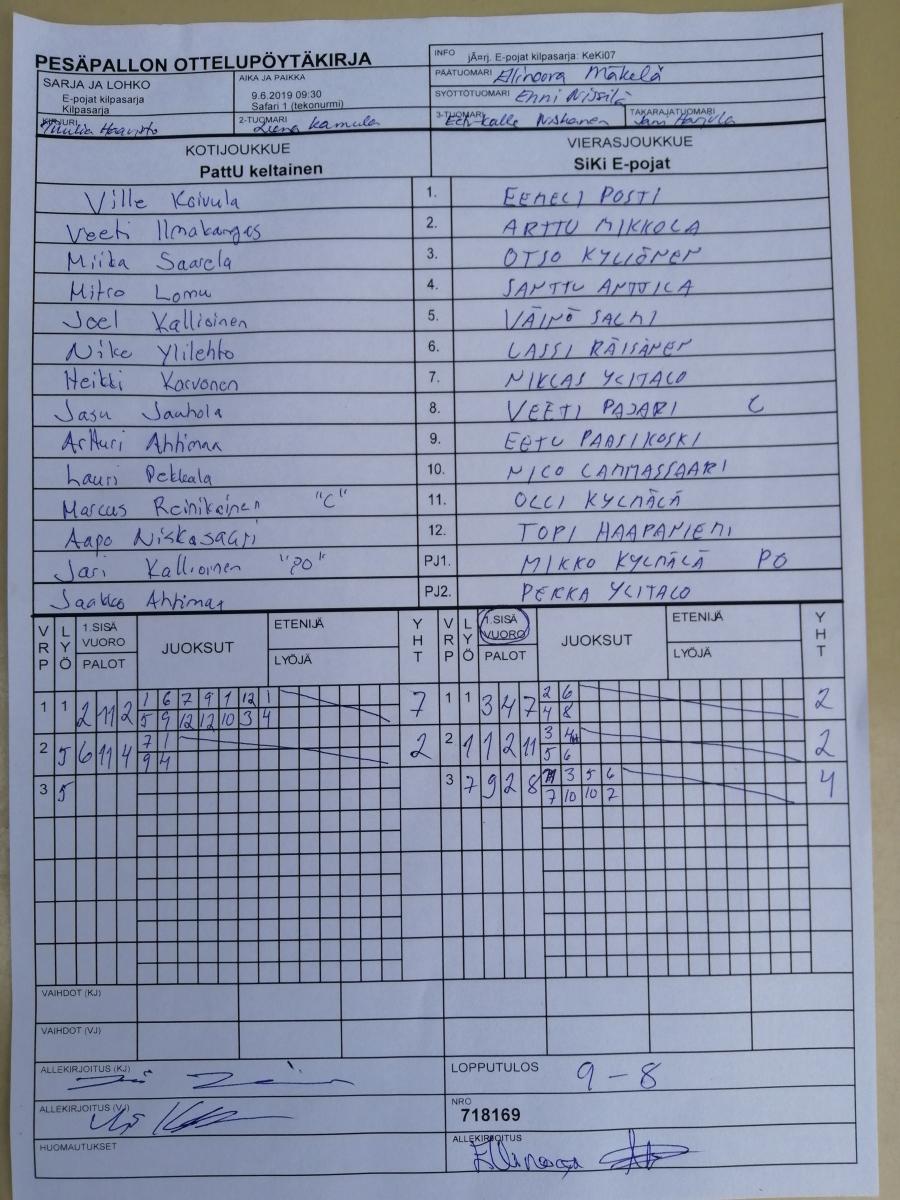 PESÄPALLON OTTELUPÖYTÄKIRJA
INFO jÃ¤rj. E-pojat kilpasarja: KeKi07
SARJA JA LOHKO
E-pojat kilpasarja
Kilpasarja
AIKA JA PAIKKA
9.6.2019 09:30
Safari 1 (tekonurmi)
PÄÄTUOMARI Ellinoora Mäkelä
SYÖTTÖTUOMARI Enni Nissilä
KIRJURI
2-TUOMARI Leena Kamula
3-TUOMARI Niskanen
TAKARAJATUOMARI
KOTIJOUKKUE
PattU keltainen
VIERASJOUKKUE
SiKi E-pojat
Ville Koivula 1. EEMELI POSTI
Veeti Ilmakangas 2. ARTTU MIKKOLA
Miika Saarela 3. OTSO KYLIÖNEN
Mitro Lomu 4. SANTTU ANTTILA
Joel Kallioinen 5. VÄINÖ SALMI
Niko Ylilehto 6. LASSI RÄISÄNEN
Heikki Korvonen 7. NIKLAS YLITALO
Jasu Jauhola 8. VEETI PAJARI C
Artturi Ahtimaa 9. EETU PAASIKOSKI
Lauri Pekkala 10. NICO LAMMASSAARI
Marcus Reinikainen "C" 11. OLLI KYLMÄLÄ
Aapo Niskasaari 12. TOPI HAAPANIEMI
Jari Kallioinen "PO" PJ1. MIKKO KYLMÄLÄ PO
Jaakko Ahtimaa PJ2. PEKKA YLITALO
VRP LYÖ 1.SISÄ VUORO PALOT JUOKSUT ETENIJÄ LYÖJÄ YHT VRP LYÖ 1.SISÄ VUORO PALOT JUOKSUT ETENIJÄ LYÖJÄ YHT
1 1 2 11 2 1 6 7 9 1 12 1 7 1 1 3 4 7 2 6 2
5 9 12 12 10 3 4 4 8
2 5 6 11 4 7 1 2 2 1 1 2 11 3 4 2
9 4 5 6
3 5 3 7 9 2 8 3 5 6 4
7 10 10 2
VAIHDOT (KJ)
VAIHDOT (VJ)
ALLEKIRJOITUS (KJ)
LOPPUTULOS 9 - 8
ALLEKIRJOITUS (VJ)
NRO
718169
HUOMAUTUKSET
ALLEKIRJOITUS